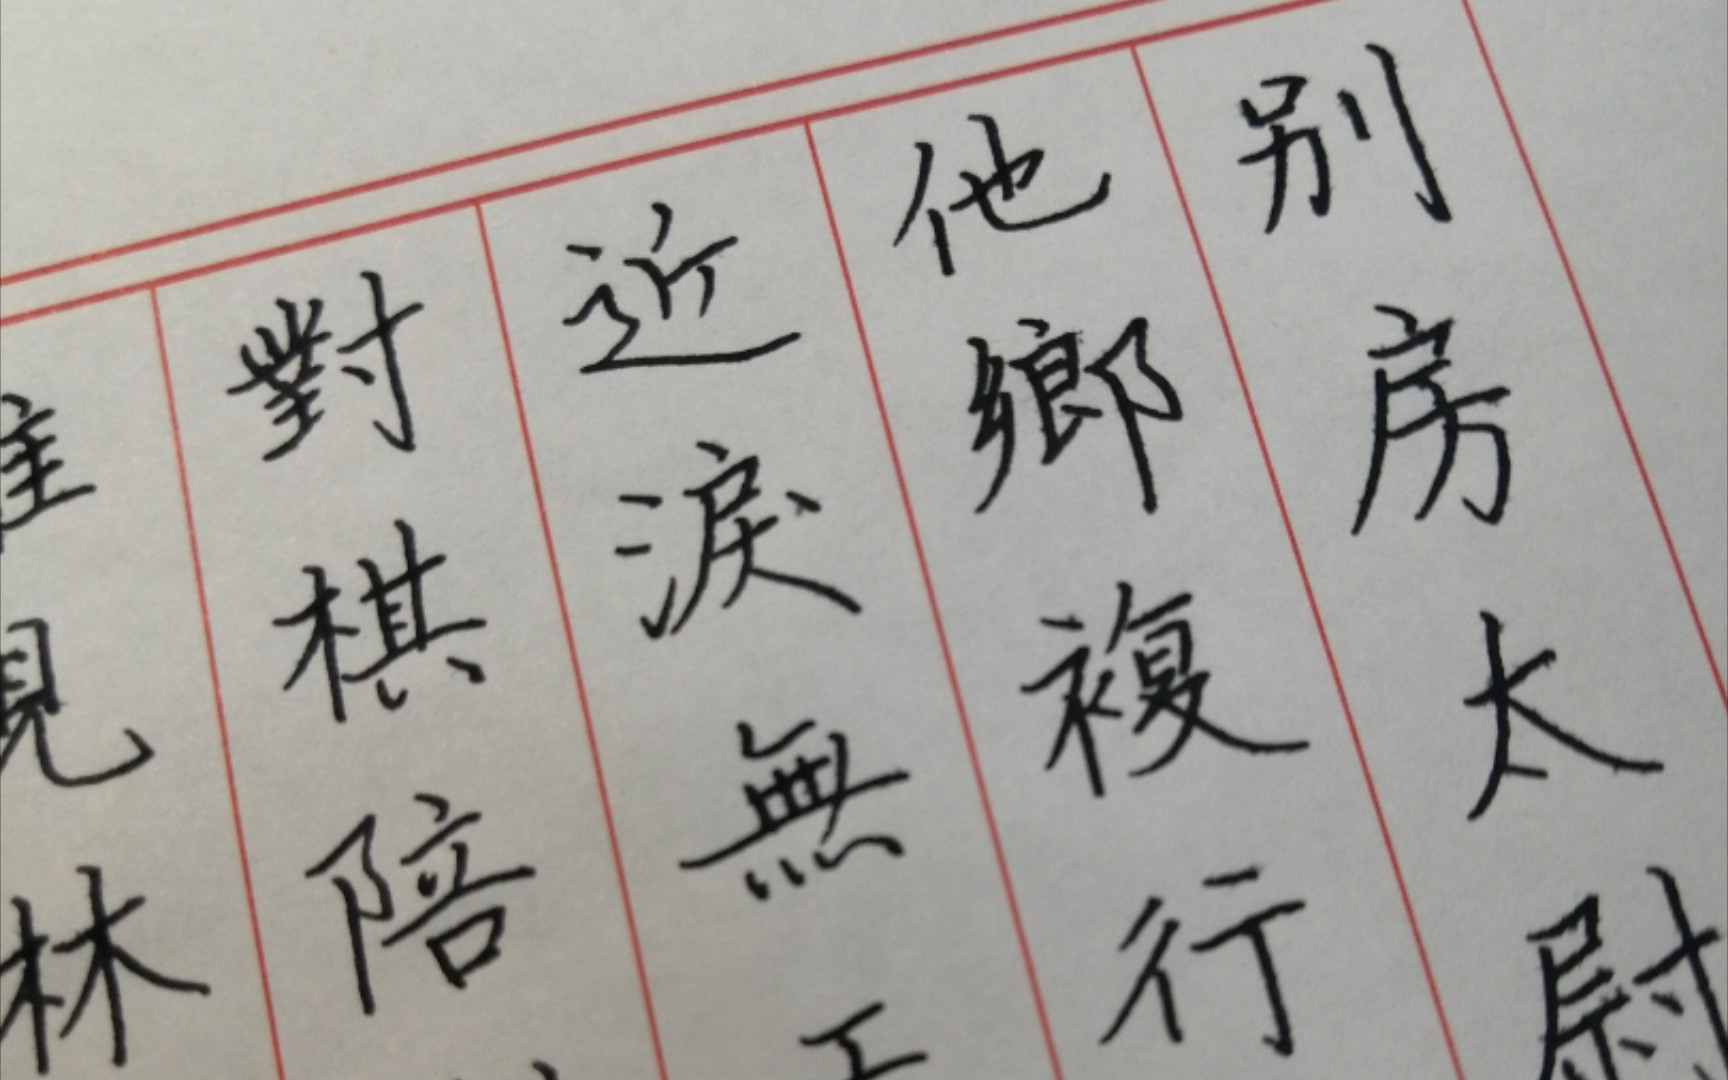 别房太尉
他鄉複行
近淚無
對棋陪
見林